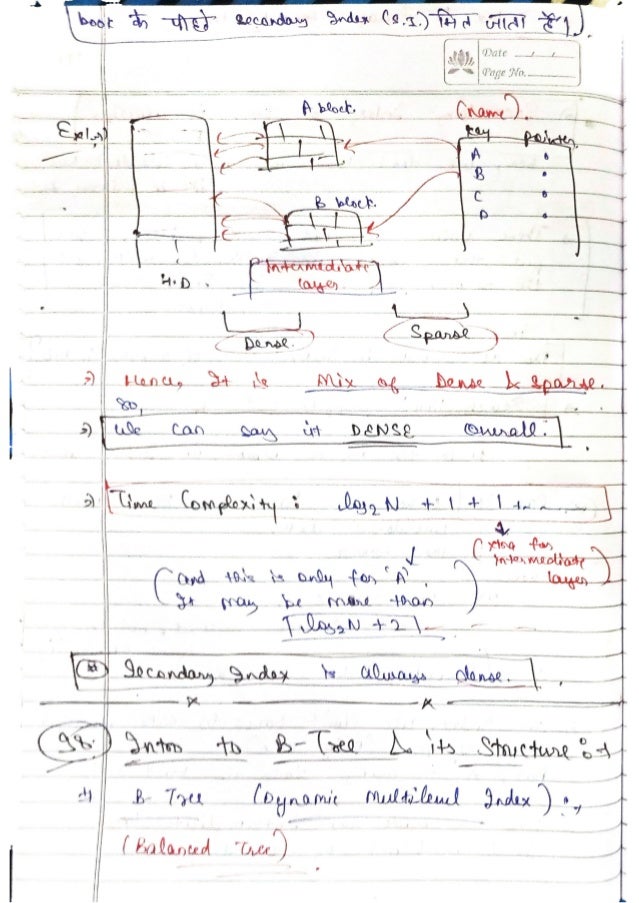 book के पीछे secondary Index (S.I.) मिल जाता है।
Date
Page No.
A block.
(name).
Expl.→
key pointer
A
B
C
D
B block.
H.D.
Intermediate
layer
Dense.
Sparse
⇒) Hence, It is Mix of Dense & sparse.
so,
⇒) We can say it DENSE Overall.
⇒) Time Complexity: log₂N + 1 + 1 +......
(xtra for
intermediate
layer)
(and this is only for 'A'.
It may be more than
⌈log₂N + 2⌉
(*) Secondary Index is always dense.
98.) Intro to B-Tree & its Structure :→
→) B-Tree (Dynamic Multilevel Index) :→
(Balanced Tree)